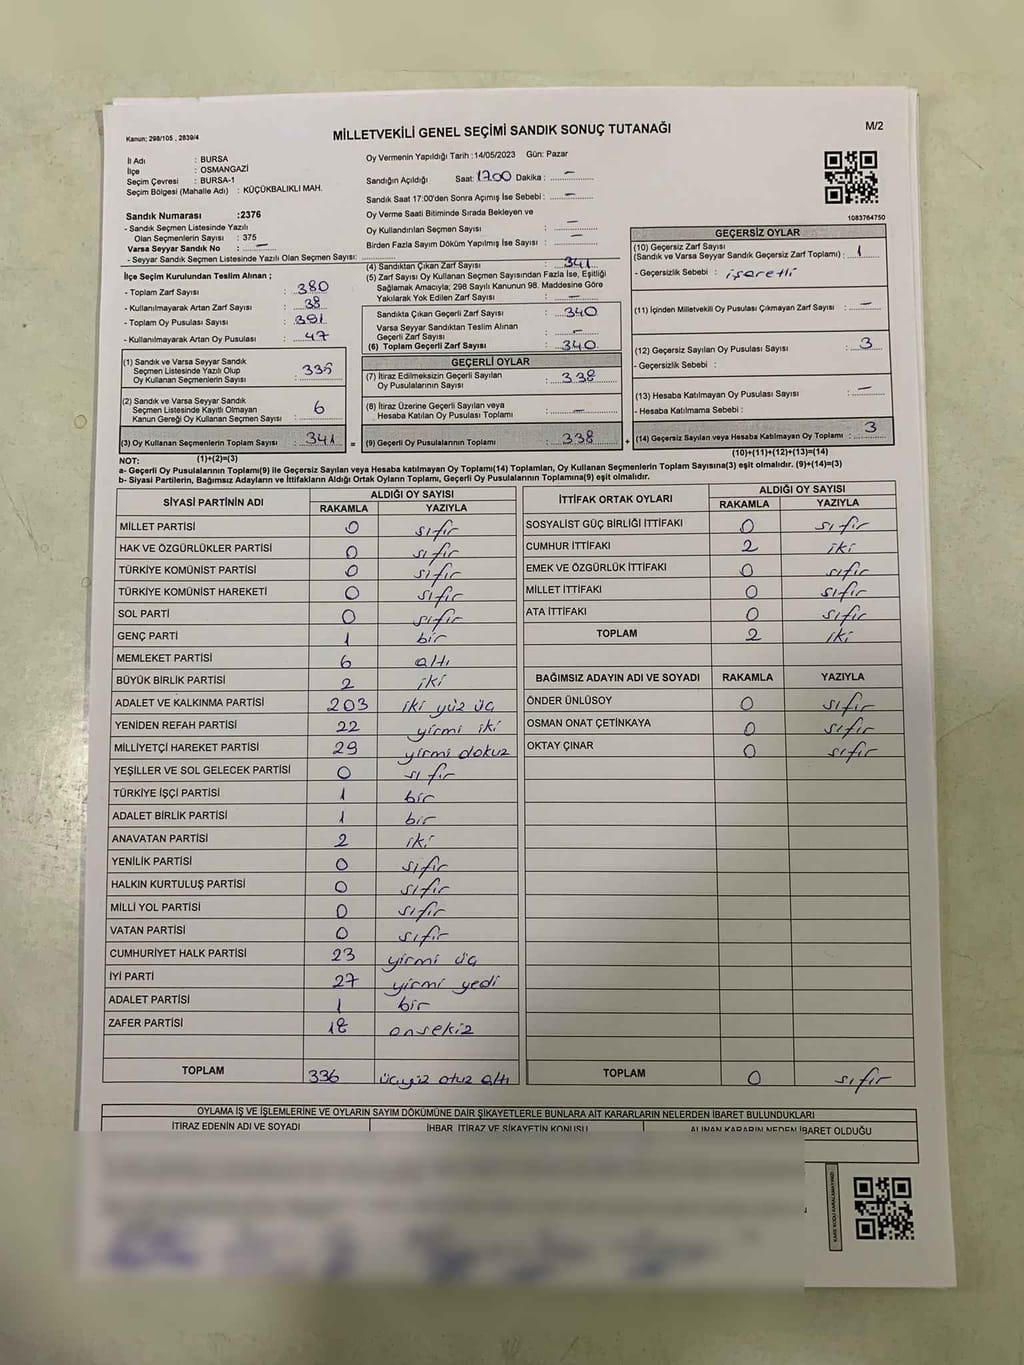 Kanun: 298/105 , 2839/4
MİLLETVEKİLİ GENEL SEÇİMİ SANDIK SONUÇ TUTANAĞI
M/2
İl Adı : BURSA
İlçe : OSMANGAZİ
Seçim Çevresi : BURSA-1
Seçim Bölgesi (Mahalle Adı) : KÜÇÜKBALIKLI MAH.
Sandık Numarası :2376
- Sandık Seçmen Listesinde Yazılı
Olan Seçmenlerin Sayısı : 375
Varsa Seyyar Sandık No : —
- Seyyar Sandık Seçmen Listesinde Yazılı Olan Seçmen Sayısı:
Oy Vermenin Yapıldığı Tarih :14/05/2023 Gün: Pazar
Sandığın Açıldığı Saat: 17.00 Dakika : —
Sandık Saat 17:00'den Sonra Açımış İse Sebebi : —
Oy Verme Saati Bitiminde Sırada Bekleyen ve
Oy Kullandırılan Seçmen Sayısı : —
Birden Fazla Sayım Döküm Yapılmış İse Sayısı : —
1083764750
İlçe Seçim Kurulundan Teslim Alınan ;
- Toplam Zarf Sayısı : 380
- Kullanılmayarak Artan Zarf Sayısı : 38
- Toplam Oy Pusulası Sayısı : 391
- Kullanılmayarak Artan Oy Pusulası : 47
(1) Sandık ve Varsa Seyyar Sandık
Seçmen Listesinde Yazılı Olup
Oy Kullanan Seçmenlerin Sayısı : 335
(2) Sandık ve Varsa Seyyar Sandık
Seçmen Listesinde Kayıtlı Olmayan
Kanun Gereği Oy Kullanan Seçmen Sayısı : 6
(3) Oy Kullanan Seçmenlerin Toplam Sayısı : 341 =
(1)+(2)=(3)
(4) Sandıktan Çıkan Zarf Sayısı : 341
(5) Zarf Sayısı Oy Kullanan Seçmen Sayısından Fazla İse, Eşitliği
Sağlamak Amacıyla; 298 Sayılı Kanunun 98. Maddesine Göre
Yakılarak Yok Edilen Zarf Sayısı : —
Sandıkta Çıkan Geçerli Zarf Sayısı : 340
Varsa Seyyar Sandıktan Teslim Alınan
Geçerli Zarf Sayısı : —
(6) Toplam Geçerli Zarf Sayısı : 340
GEÇERLİ OYLAR
(7) İtiraz Edilmeksizin Geçerli Sayılan
Oy Pusulalarının Sayısı : 338
(8) İtiraz Üzerine Geçerli Sayılan veya
Hesaba Katılan Oy Pusulası Toplamı : —
(9) Geçerli Oy Pusulalarının Toplamı : 338 +
GEÇERSİZ OYLAR
(10) Geçersiz Zarf Sayısı
(Sandık ve Varsa Seyyar Sandık Geçersiz Zarf Toplamı) : 1
- Geçersizlik Sebebi : işaretli
(11) İçinden Milletvekili Oy Pusulası Çıkmayan Zarf Sayısı : —
(12) Geçersiz Sayılan Oy Pusulası Sayısı : 3
- Geçersizlik Sebebi :
(13) Hesaba Katılmayan Oy Pusulası Sayısı : —
- Hesaba Katılmama Sebebi :
(14) Geçersiz Sayılan veya Hesaba Katılmayan Oy Toplamı : 3
(10)+(11)+(12)+(13)=(14)
NOT:
a- Geçerli Oy Pusulalarının Toplamı(9) ile Geçersiz Sayılan veya Hesaba katılmayan Oy Toplamı(14) Toplamları, Oy Kullanan Seçmenlerin Toplam Sayısına(3) eşit olmalıdır. (9)+(14)=(3)
b- Siyasi Partilerin, Bağımsız Adayların ve İttifakların Aldığı Ortak Oyların Toplamı, Geçerli Oy Pusulalarının Toplamına(9) eşit olmalıdır.
SİYASİ PARTİNİN ADI ALDIĞI OY SAYISI
RAKAMLA YAZIYLA
MİLLET PARTİSİ 0 sıfır
HAK VE ÖZGÜRLÜKLER PARTİSİ 0 sıfır
TÜRKİYE KOMÜNİST PARTİSİ 0 sıfır
TÜRKİYE KOMÜNİST HAREKETİ 0 sıfır
SOL PARTİ 0 sıfır
GENÇ PARTİ 1 bir
MEMLEKET PARTİSİ 6 altı
BÜYÜK BİRLİK PARTİSİ 2 iki
ADALET VE KALKINMA PARTİSİ 203 iki yüz üç
YENİDEN REFAH PARTİSİ 22 yirmi iki
MİLLİYETÇİ HAREKET PARTİSİ 29 yirmi dokuz
YEŞİLLER VE SOL GELECEK PARTİSİ 0 sıfır
TÜRKİYE İŞÇİ PARTİSİ 1 bir
ADALET BİRLİK PARTİSİ 1 bir
ANAVATAN PARTİSİ 2 iki
YENİLİK PARTİSİ 0 sıfır
HALKIN KURTULUŞ PARTİSİ 0 sıfır
MİLLİ YOL PARTİSİ 0 sıfır
VATAN PARTİSİ 0 sıfır
CUMHURİYET HALK PARTİSİ 23 yirmi üç
İYİ PARTİ 27 yirmi yedi
ADALET PARTİSİ 1 bir
ZAFER PARTİSİ 18 onsekiz
TOPLAM 336 üçyüz otuz altı
İTTİFAK ORTAK OYLARI ALDIĞI OY SAYISI
RAKAMLA YAZIYLA
SOSYALİST GÜÇ BİRLİĞİ İTTİFAKI 0 sıfır
CUMHUR İTTİFAKI 2 iki
EMEK VE ÖZGÜRLÜK İTTİFAKI 0 sıfır
MİLLET İTTİFAKI 0 sıfır
ATA İTTİFAKI 0 sıfır
TOPLAM 2 iki
BAĞIMSIZ ADAYIN ADI VE SOYADI RAKAMLA YAZIYLA
ÖNDER ÜNLÜSOY 0 sıfır
OSMAN ONAT ÇETİNKAYA 0 sıfır
OKTAY ÇINAR 0 sıfır
TOPLAM 0 sıfır
OYLAMA İŞ VE İŞLEMLERİNE VE OYLARIN SAYIM DÖKÜMÜNE DAİR ŞİKAYETLERLE BUNLARA AİT KARARLARIN NELERDEN İBARET BULUNDUKLARI
İTİRAZ EDENİN ADI VE SOYADI İHBAR, İTİRAZ VE ŞİKAYETİN KONUSU ALINAN KARARIN NEDEN İBARET OLDUĞU
KARE KODU KARALAMAYINIZ!